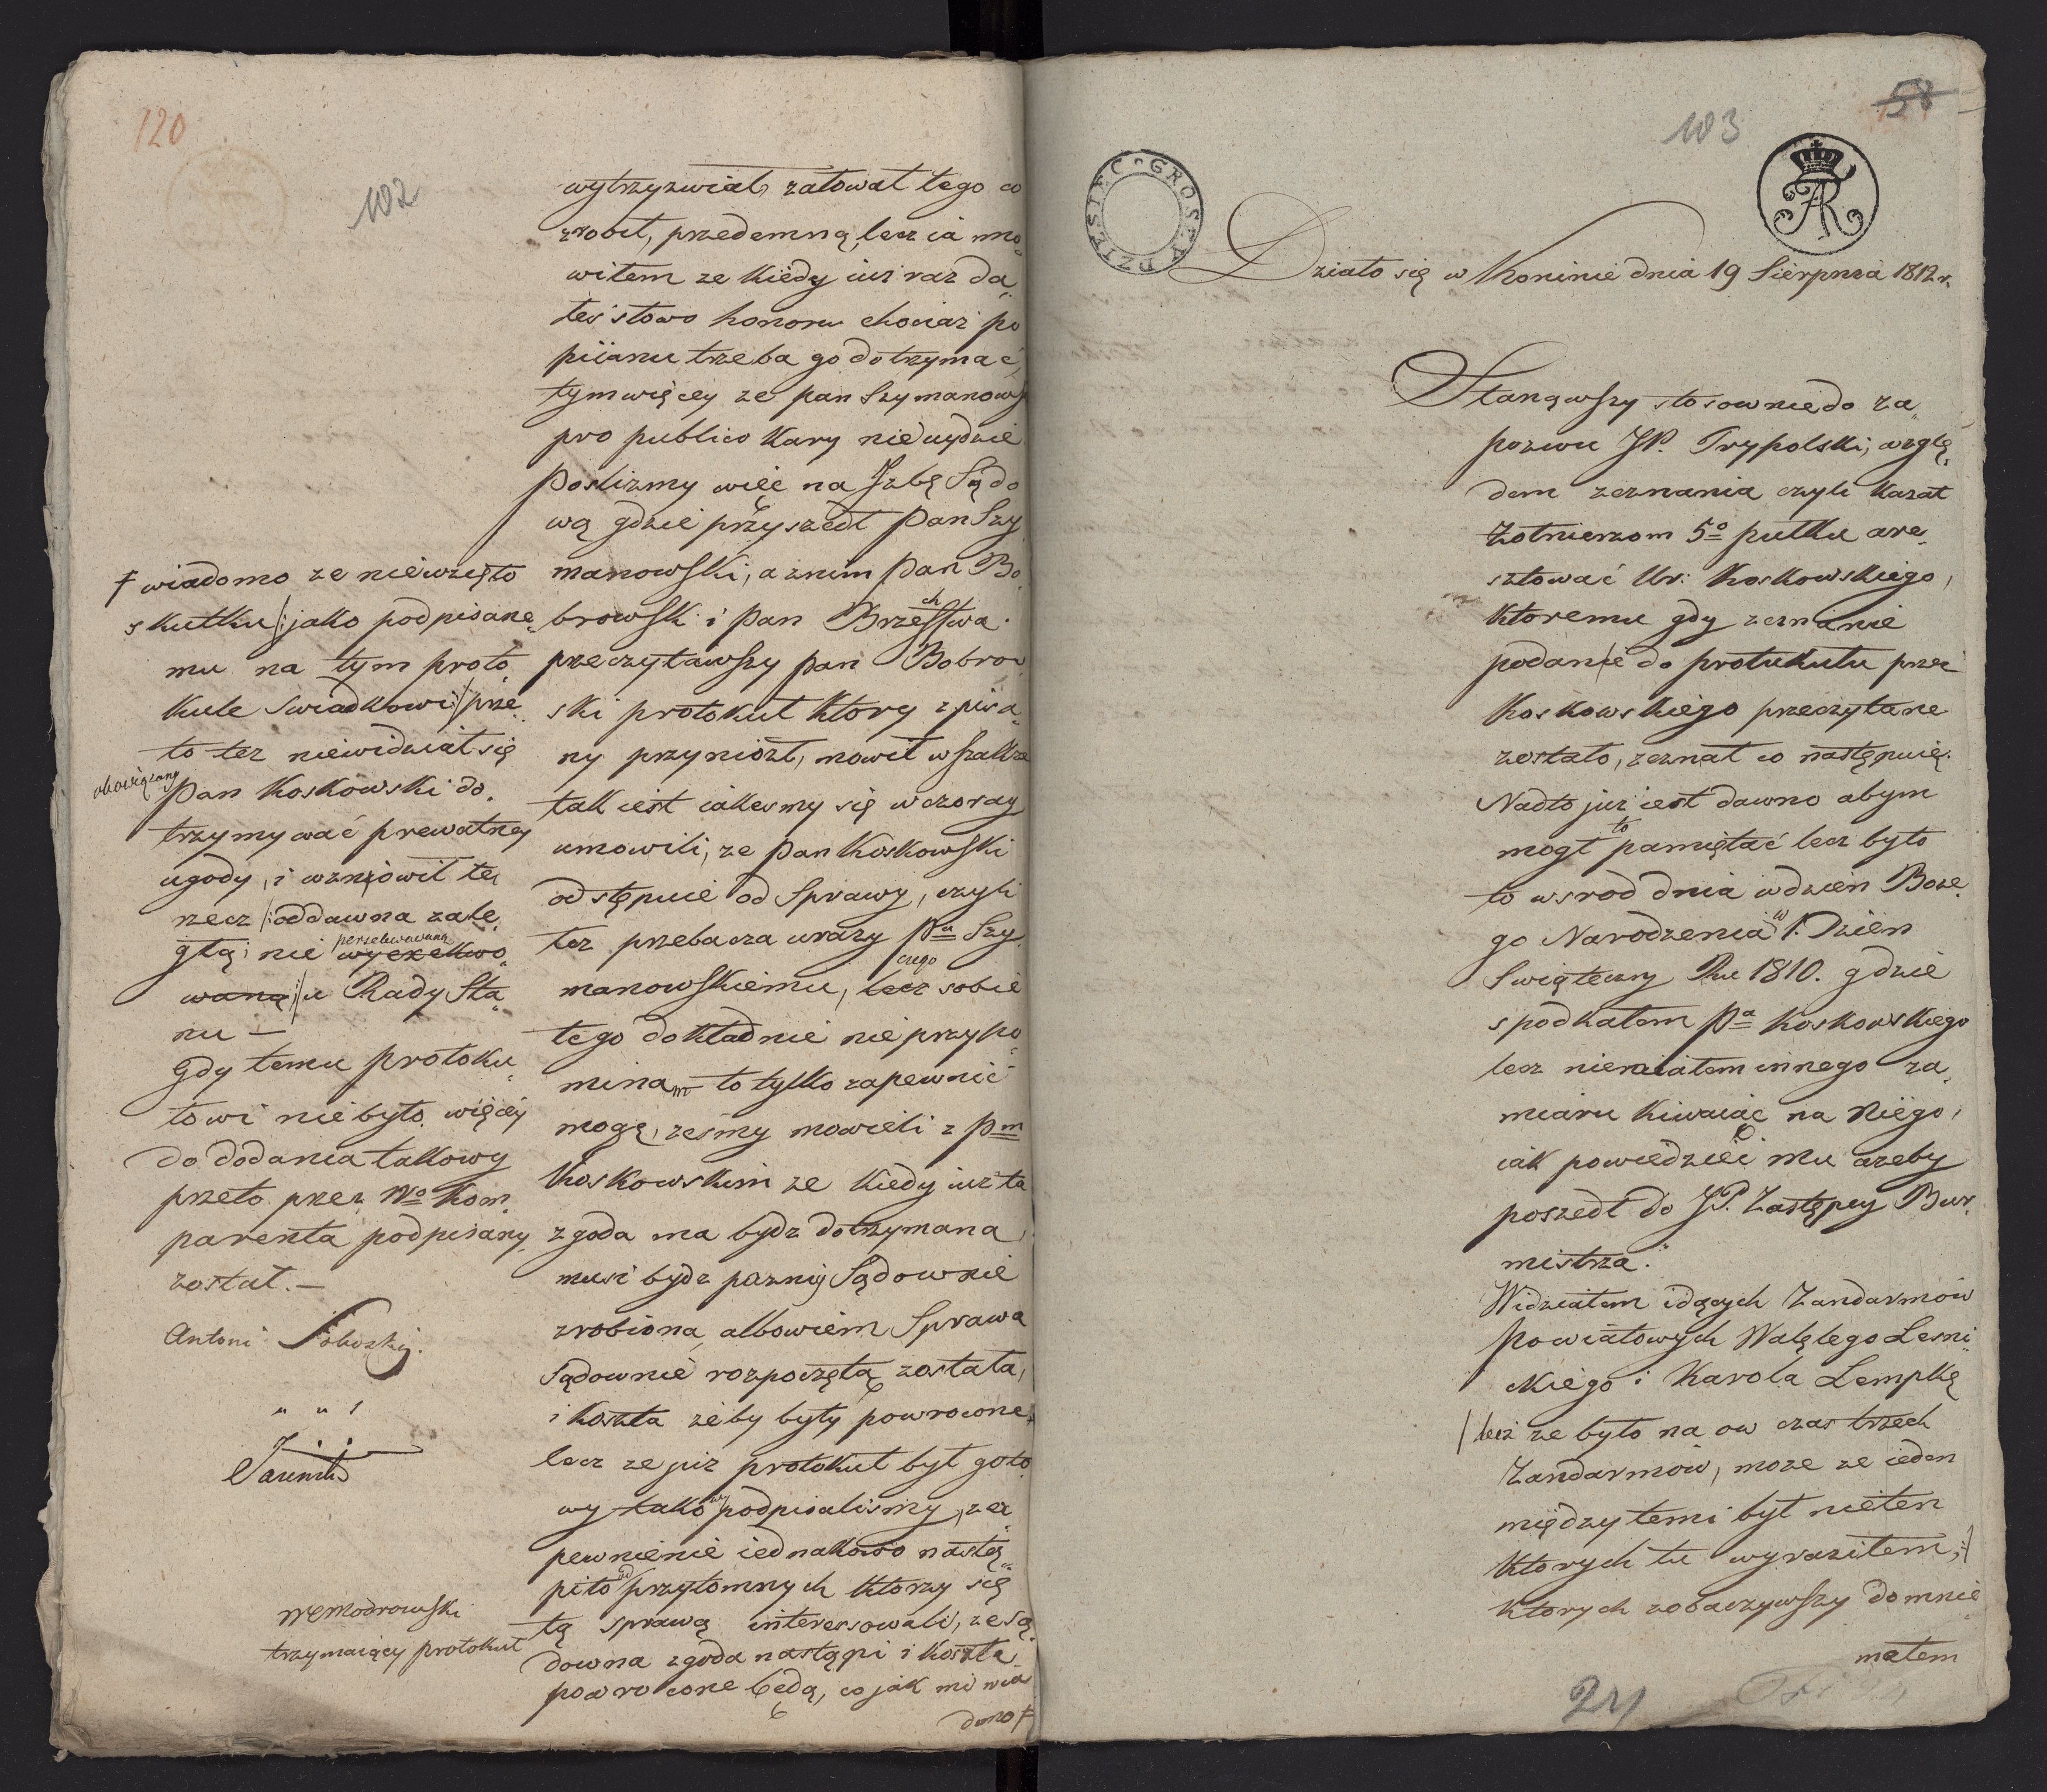 120
102
wytrzyzwiał, załował tego co
zrobił, przedemną, lecz ia mo„
wiłem ze kiedy iuż raz da„
łeś słowo honoru chociaż po
piianu trzeba go dotrzymać,
tym więcey ze pan Szymanows
pro publico kary nieuydzie
Poslizmy więc na Jzbę Sądo
wą gdzie przyszedł Pan Szy
manowski, a znim Pan Bo„
browski i Pan Brzechwa.
przeczytawszy Pan Bobrow
ski protokuł ktory zpisa„
ny przyniozł, mowił wszakze
tak iest iakesmy się wczoray
umowili, ze Pan Koskowski
odstępuie od Sprawy, czyli
tez przebacza urazy Pu Szy
manowskiemu, lecz czego sobie
tego dokładnie nie przypo„
minam to tylko zapewnić
mogę, zesmy mowili z Pm
Koskowskim ze kiedy iuz ta
zgoda ma bydz dotrzymana,
musi bydz pozniy Sądownie
zrobiona, albowiem Sprawa
Sądownie rozpoczętą została,
i koszta zeby były powrocone,
lecz ze juz protokuł był goto„
wy takowy podpisalismy, za„
pewnienie iednakowo nastą„
piło od przytomnych ktorzy się
tą sprawą interessowali, ze są„
downa zgoda nastąpi i koszta
powrocone będą, co jak mi wia
domo ғ
ғ wiadomo ze niewzięło
skutku /: jako podpisane„
mu na tym proto„
kule Swiadkowi :/ prze„
to tez niewidział się
obowiązany
Pan Koskowski do„
trzymywać prewatney
ugody, i wznowił tę
rzecz /: oddawna zale„
głą, nie wyexekwo„
persekwowaną
waną :/ u Rady Sta„
nu —
Gdy temu protoku„
łowi niebyło więcey
do dodania takowy
przeto przez Wo Kom„
parenta podpisany
został. —
Antoni
" u s
WModrowski
trzymaiący protokuł
58
103
DZIESIĘĆ GROSZY
FAR
Działo się w Koninie dnia 19 Sierpnia 1812 r.
Stanąwszy stosownie do za„
pozwu JP. Trypolski, wzglę„
dem zeznania czyli kazał
Zołnierzom 5o pułku are„
sztować Ur: Koskowskiego,
ktoremu gdy zeznanie
podanie do protukułu przez
Koskowskiego przeczytane
zostało, zeznał co następuię.
Nadto juz iest dawno abym
mogł to pamiętać lecz było
to wsrod dnia wdzien Boze„
go Narodzenia w 1. Dzien
Swiąteczny Ru 1810. gdzie
spodkałem Pa Koskowskiego
lecz niemiałem innego za„
miaru kiwaiąc na Niego,
iak powiedzieć mu azeby
poszedł do JP. Zastępcy Bur„
mistrza.
Widziałem idących Zandarmow
powiatowych Walętego Lesni„
ckiego i Karola Lempkę
/ lecz ze było na ow czas trzech
Zandarmow, może ze ieden
między temi był nieten
ktorych tu wyraziłem, :/
ktorych zobaczywszy domnie„
małem
24